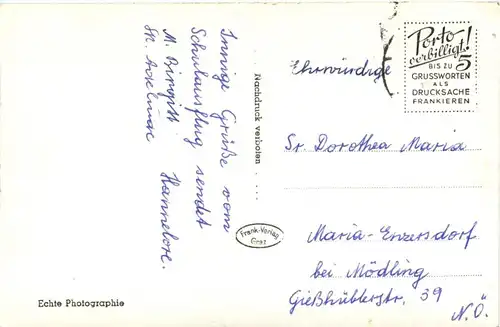 Innige Grüße vom
Schulausflug sendet
M. Birgitt Hannelore.
Sr.
Echte Photographie
Nachdruck verboten . . . .
Frank-Verlag
Graz
Porto
verbilligt!
BIS ZU 5
GRUSSWORTEN
ALS
DRUCKSACHE
FRANKIEREN
Ehrwürdige
Sr. Dorothea Maria
Maria-Enzersdorf
bei Mödling
Gießhüblerstr. 39
N.Ö.